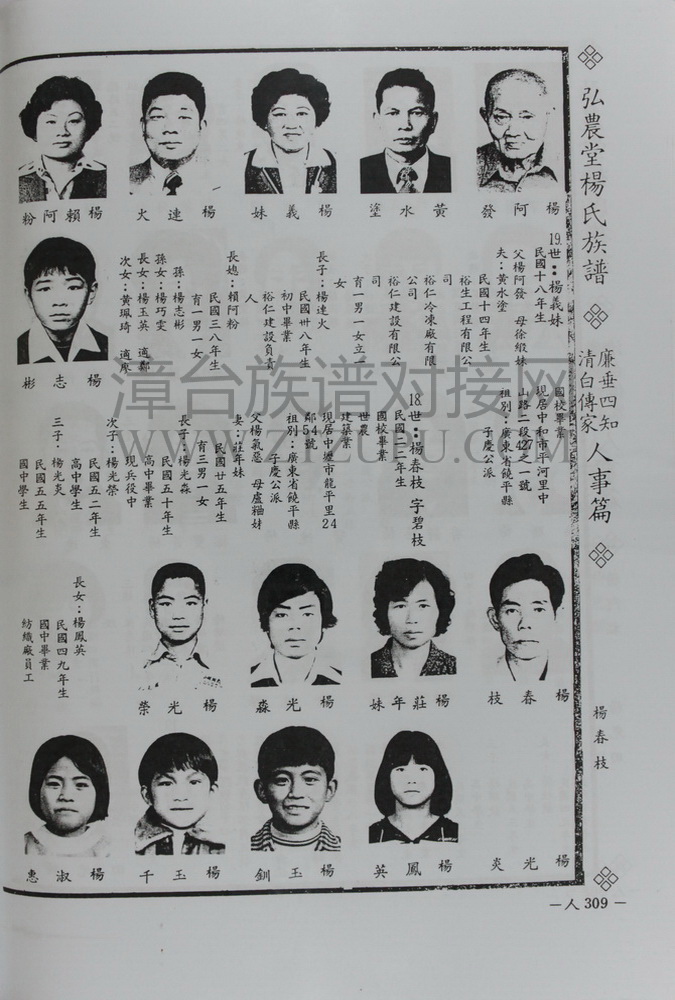 弘農堂楊氏族譜
廉垂四知
清白傳家
人事篇
楊春枝
楊阿發
黃水塗
楊義妹
楊連火
楊賴阿粉
19.世：楊義妹
民國十八年生
父楊阿發　母徐緞妹
夫：黃水塗
民國十四年生
裕生工程有限公
司
裕仁冷凍廠有限
公司
裕仁建設有限公
司
育一男一女立
女
長子：楊連火
民國卅八年生
初中畢業
裕仁建設負責
人
長媳：賴阿粉
民國三八年生
育一男一女
孫：楊志彬
孫女：楊巧雯
長女：楊玉英　適鄭
次女：黃珮琦　適廖
楊志彬
國校畢業
現居中和市平河里中
山路二段427之一號
祖別：廣東省饒平縣
子慶公派
18.世：楊春枝　字碧枝
民國二二年生
國校畢業
世農
建築業
現居中壢市龍平里24
鄰54號
祖別：廣東省饒平縣
子慶公派
父楊氣惡　母盧釉妹
妻：莊年妹
民國廿五年生
育三男一女
長子：楊光淼
民國五十年生
高中畢業
現兵役中
次子：楊光榮
民國五二年生
高中學生
三子：楊光炎
民國五五年生
國中學生
長女：楊鳳英
民國四九年生
國中畢業
紡織廠員工
楊春枝
楊莊年妹
楊光淼
楊光榮
楊光炎
楊鳳英
楊玉釧
楊玉千
楊淑惠
－人309－
漳台族谱对接网
WWW.ZTZUPU.COM